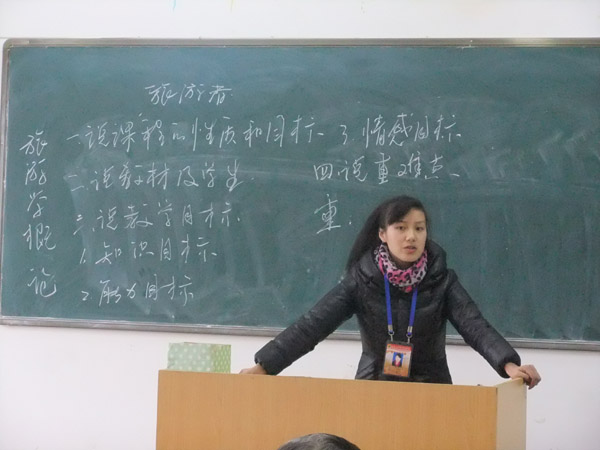 旅游者
旅游学概论
一.说课程的性质和目标
二.说教材及学生
三.说教学目标
1.知识目标
2.能力目标
3.情感目标
四.说重难点
重: